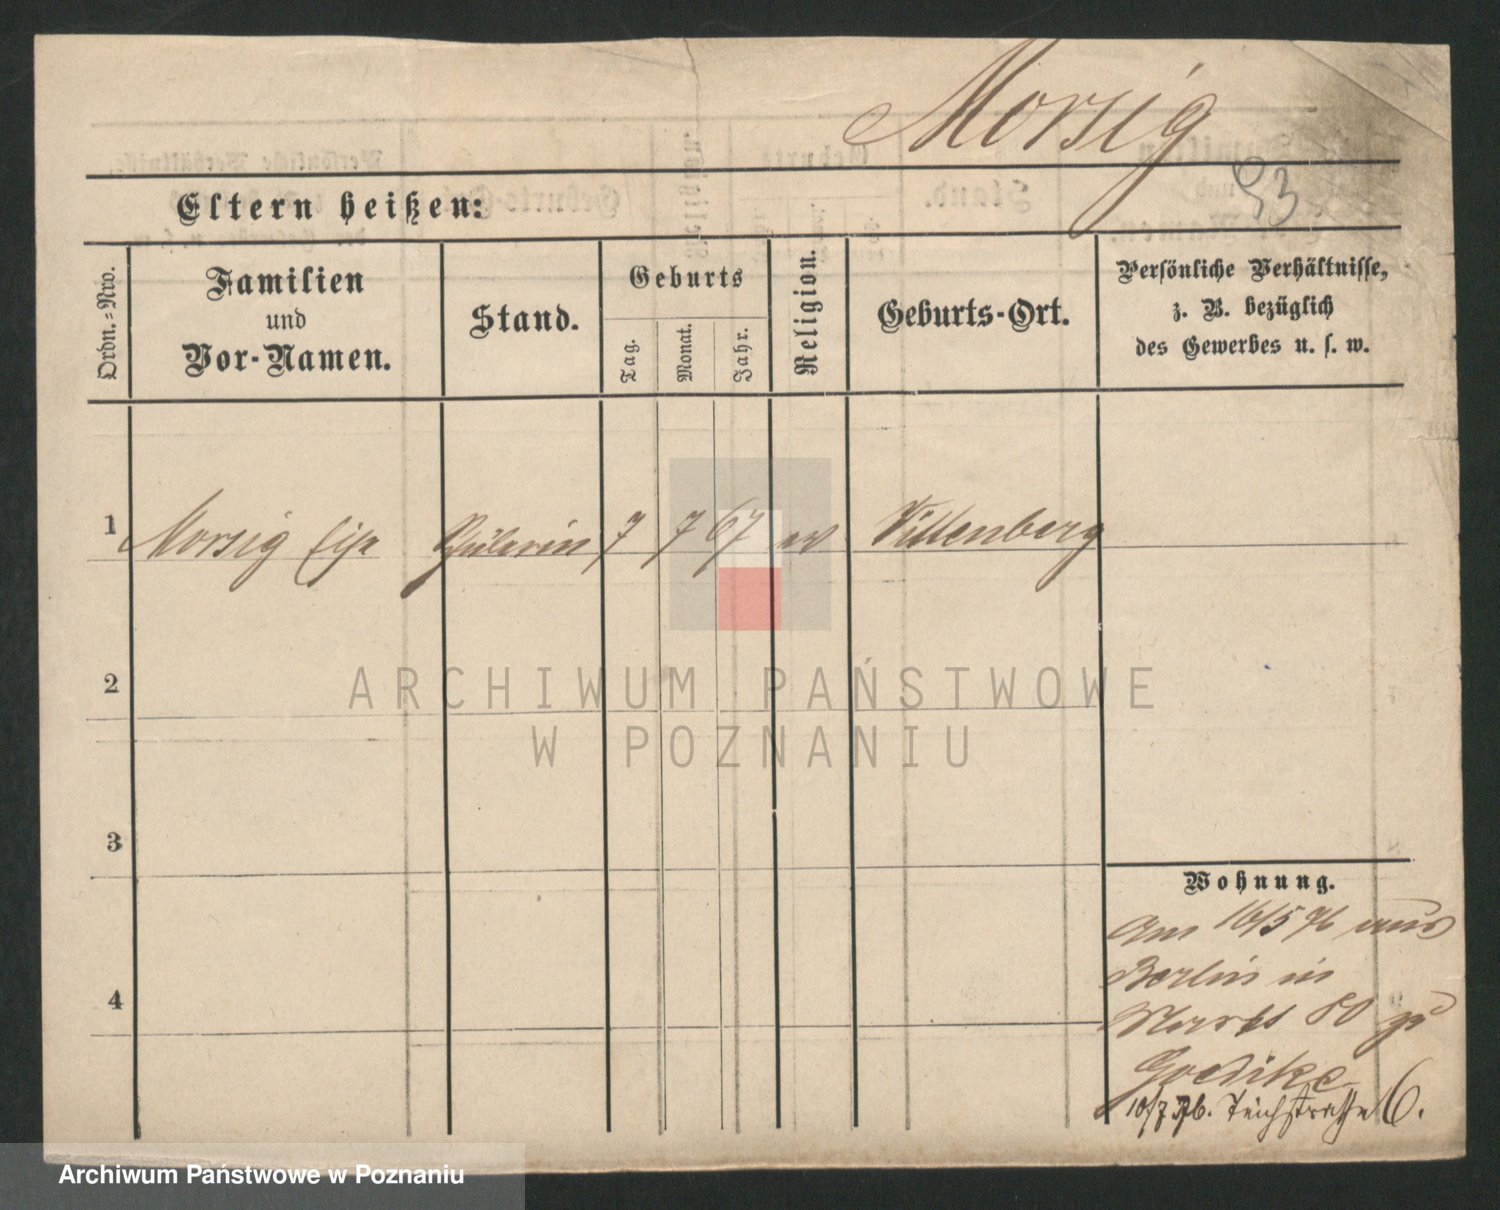 Morsig
93
Eltern heißen:
Ordn.=Nro.
Familien
und
Vor-Namen.
Stand.
Geburts
Tag.
Monat.
Jahr.
Religion.
Geburts-Ort.
Persönliche Verhältnisse,
z. B. bezüglich
des Gewerbes u. s. w.
1 Morsig Schülerin 7 7 67 ev Wittenberg
2
3
4
Wohnung.
Am 16/5 76 aus
Berlin in
Markt 80 zu
Goedike
10/7 76. Teichstrasse 6.
ARCHIWUM PAŃSTWOWE
W POZNANIU
Archiwum Państwowe w Poznaniu